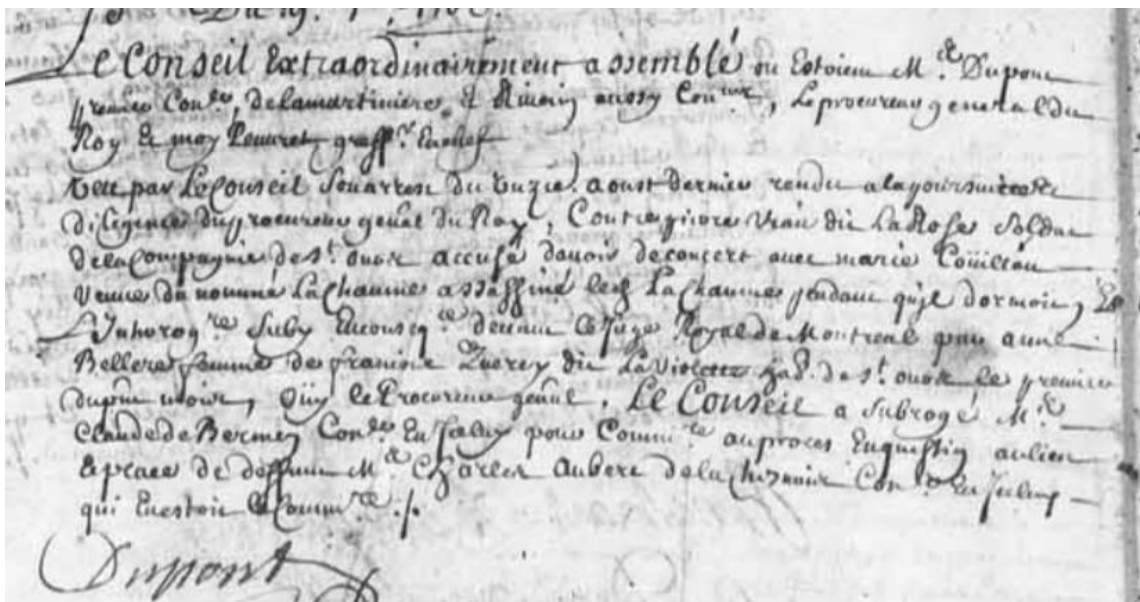 Le Conseil Extraordinairement assemblé ou Estoient M.rs Dupont
premier Con.er, delamartiniere & Riverin aussy Con.ers, Le procureur general du
Roy & moy Peuvret greff.r Enchef
Veu par Le Conseil Son arrest du aoust dernier rendu alapoursuitte &
diligence du procureur gen̄al du Roy, Contre pierre Viau dit LaRose Soldat
de la Compagnie de st. ours accusé d'avoir de concert avec marie Coüillau
Veuve du nommé La Chaume assassiné led. La Chaume pendant qu'jl dormoit, Et
L'Inter̄og.re Suby devant le Juge Royal de Montreal par anne
femme de francois dit La Violette hab. de st. ours le premier
du p̄nt mois, Oüy le Procureur gen̄al. Le Conseil a Subrogé M.e
Claude de Bermen Con.er En Jceluy pour Comm.re au proces En question au lieu
& place de deffunt M.e Charles Aubert de la Chesnaie Con.er En Jceluy
qui En estoit le Comm.re ./.
Dupont